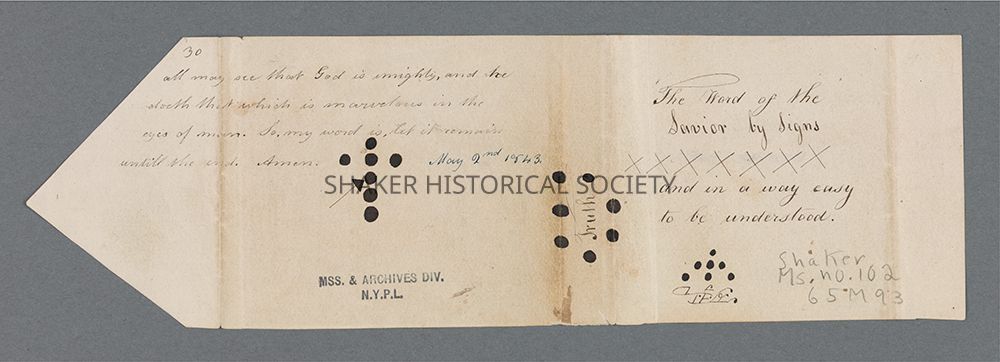 30
all may see that God is mighty, and he
doeth that which is marvelous in the
eyes of man. So, my word is, let it remain
untill the end. Amen. May 2nd 1843.
SHAKER HISTORICAL SOCIETY
MSS. & ARCHIVES DIV.
N.Y.P.L.
Truth
The Word of the
Savior by Signs
X X X X X X X
and in a way easy
to be understood.
Shaker
Ms. no. 102
65M93